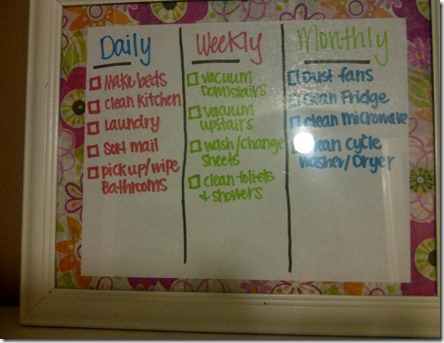 Daily
Make beds
Clean Kitchen
Laundry
Sort mail
pick up/wipe
Bathrooms
Weekly
vacuum
Downstairs
vacuum
upstairs
wash/change
sheets
clean toliets
& showers
Monthly
Dust fans
Clean Fridge
clean microwave
Clean Cycle
washer/Dryer